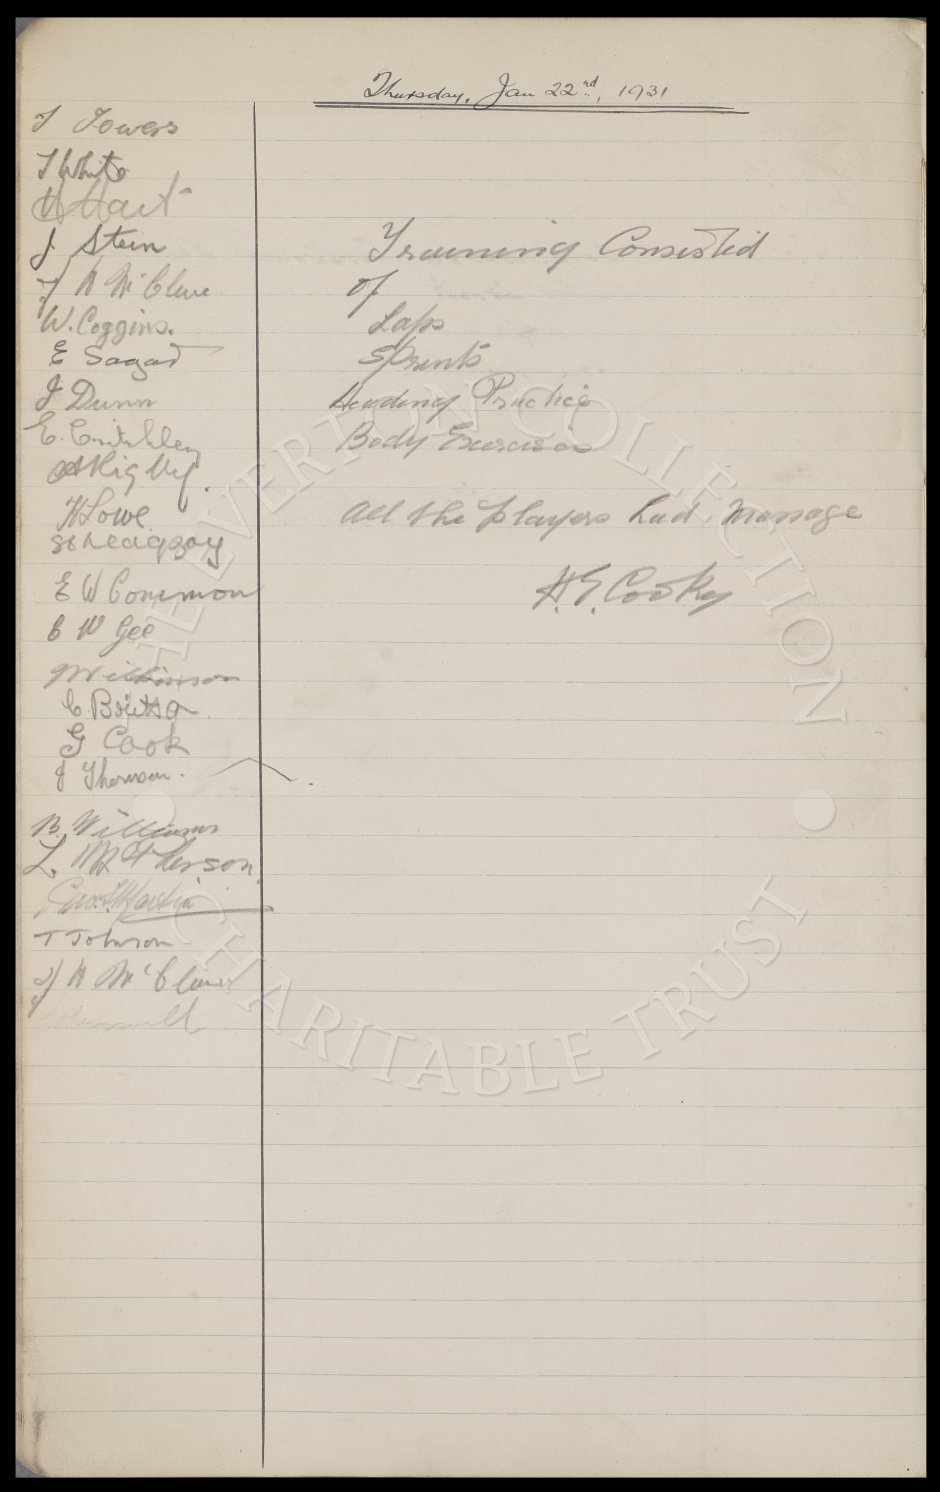 Thursday, Jan 22nd, 1931
J Towers
T White
H Hart
J Stein
J H McClure
W. Coggins.
E Sagar
J Dunn
E. Critchley
A Rigby.
H Lowe
E W Common
C W Gee
Wilkinson
C. Britton
G Cook
J Thomson.
B. Williams
L. McPherson
Geo. Martin
T Johnson
J H McClure
Training Consisted
of
Laps
Sprints
Heading Practice
Body Exercises
All the players had massage
H. E. Cooke
THE EVERTON COLLECTION
CHARITABLE TRUST